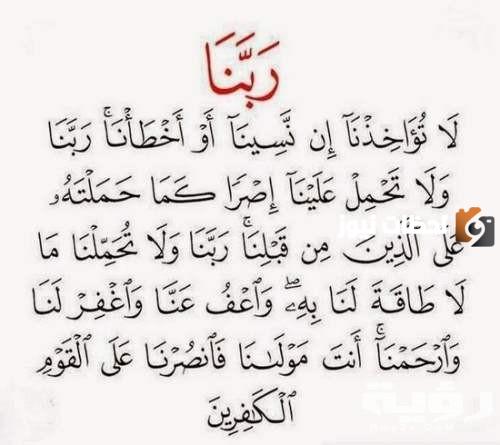 رَبَّنَا
لَا تُؤَاخِذْنَآ إِن نَّسِينَآ أَوْ أَخْطَأْنَاۚ رَبَّنَا
وَلَا تَحْمِلْ عَلَيْنَآ إِصْرًا كَمَا حَمَلْتَهُۥ
عَلَى ٱلَّذِينَ مِن قَبْلِنَاۚ رَبَّنَا وَلَا تُحَمِّلْنَا مَا
لَا طَاقَةَ لَنَا بِهِۦۖ وَٱعْفُ عَنَّا وَٱغْفِرْ لَنَا
وَٱرْحَمْنَآۚ أَنتَ مَوْلَىٰنَا فَٱنصُرْنَا عَلَى ٱلْقَوْمِ
ٱلْكَٰفِرِينَ
لحظات نيوز
رؤية